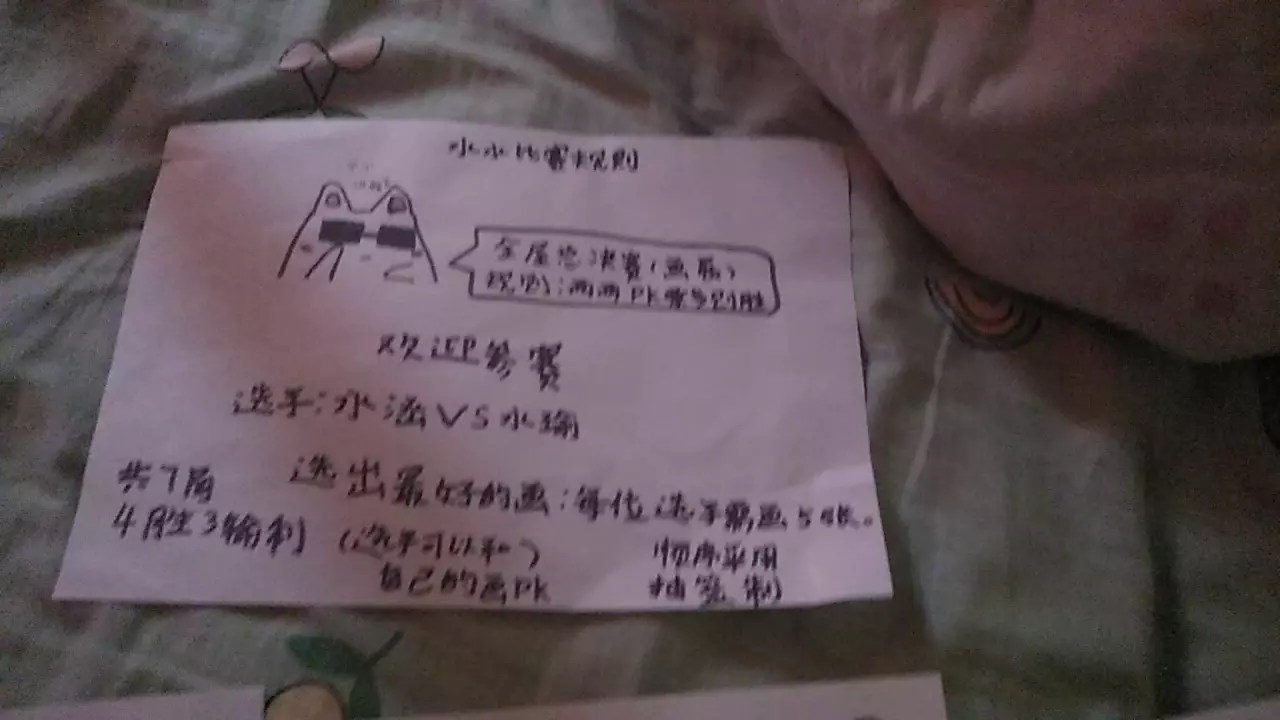 水水比赛规则
全屋总决赛(画脑)
规则:两两PK票多则胜
欢迎参赛
选手:水涵VS水瑜
选出最好的画:每位选手需画5张。
共7局
4胜3输制
(选手可以和)
自己的画PK
顺序采用
抽签制